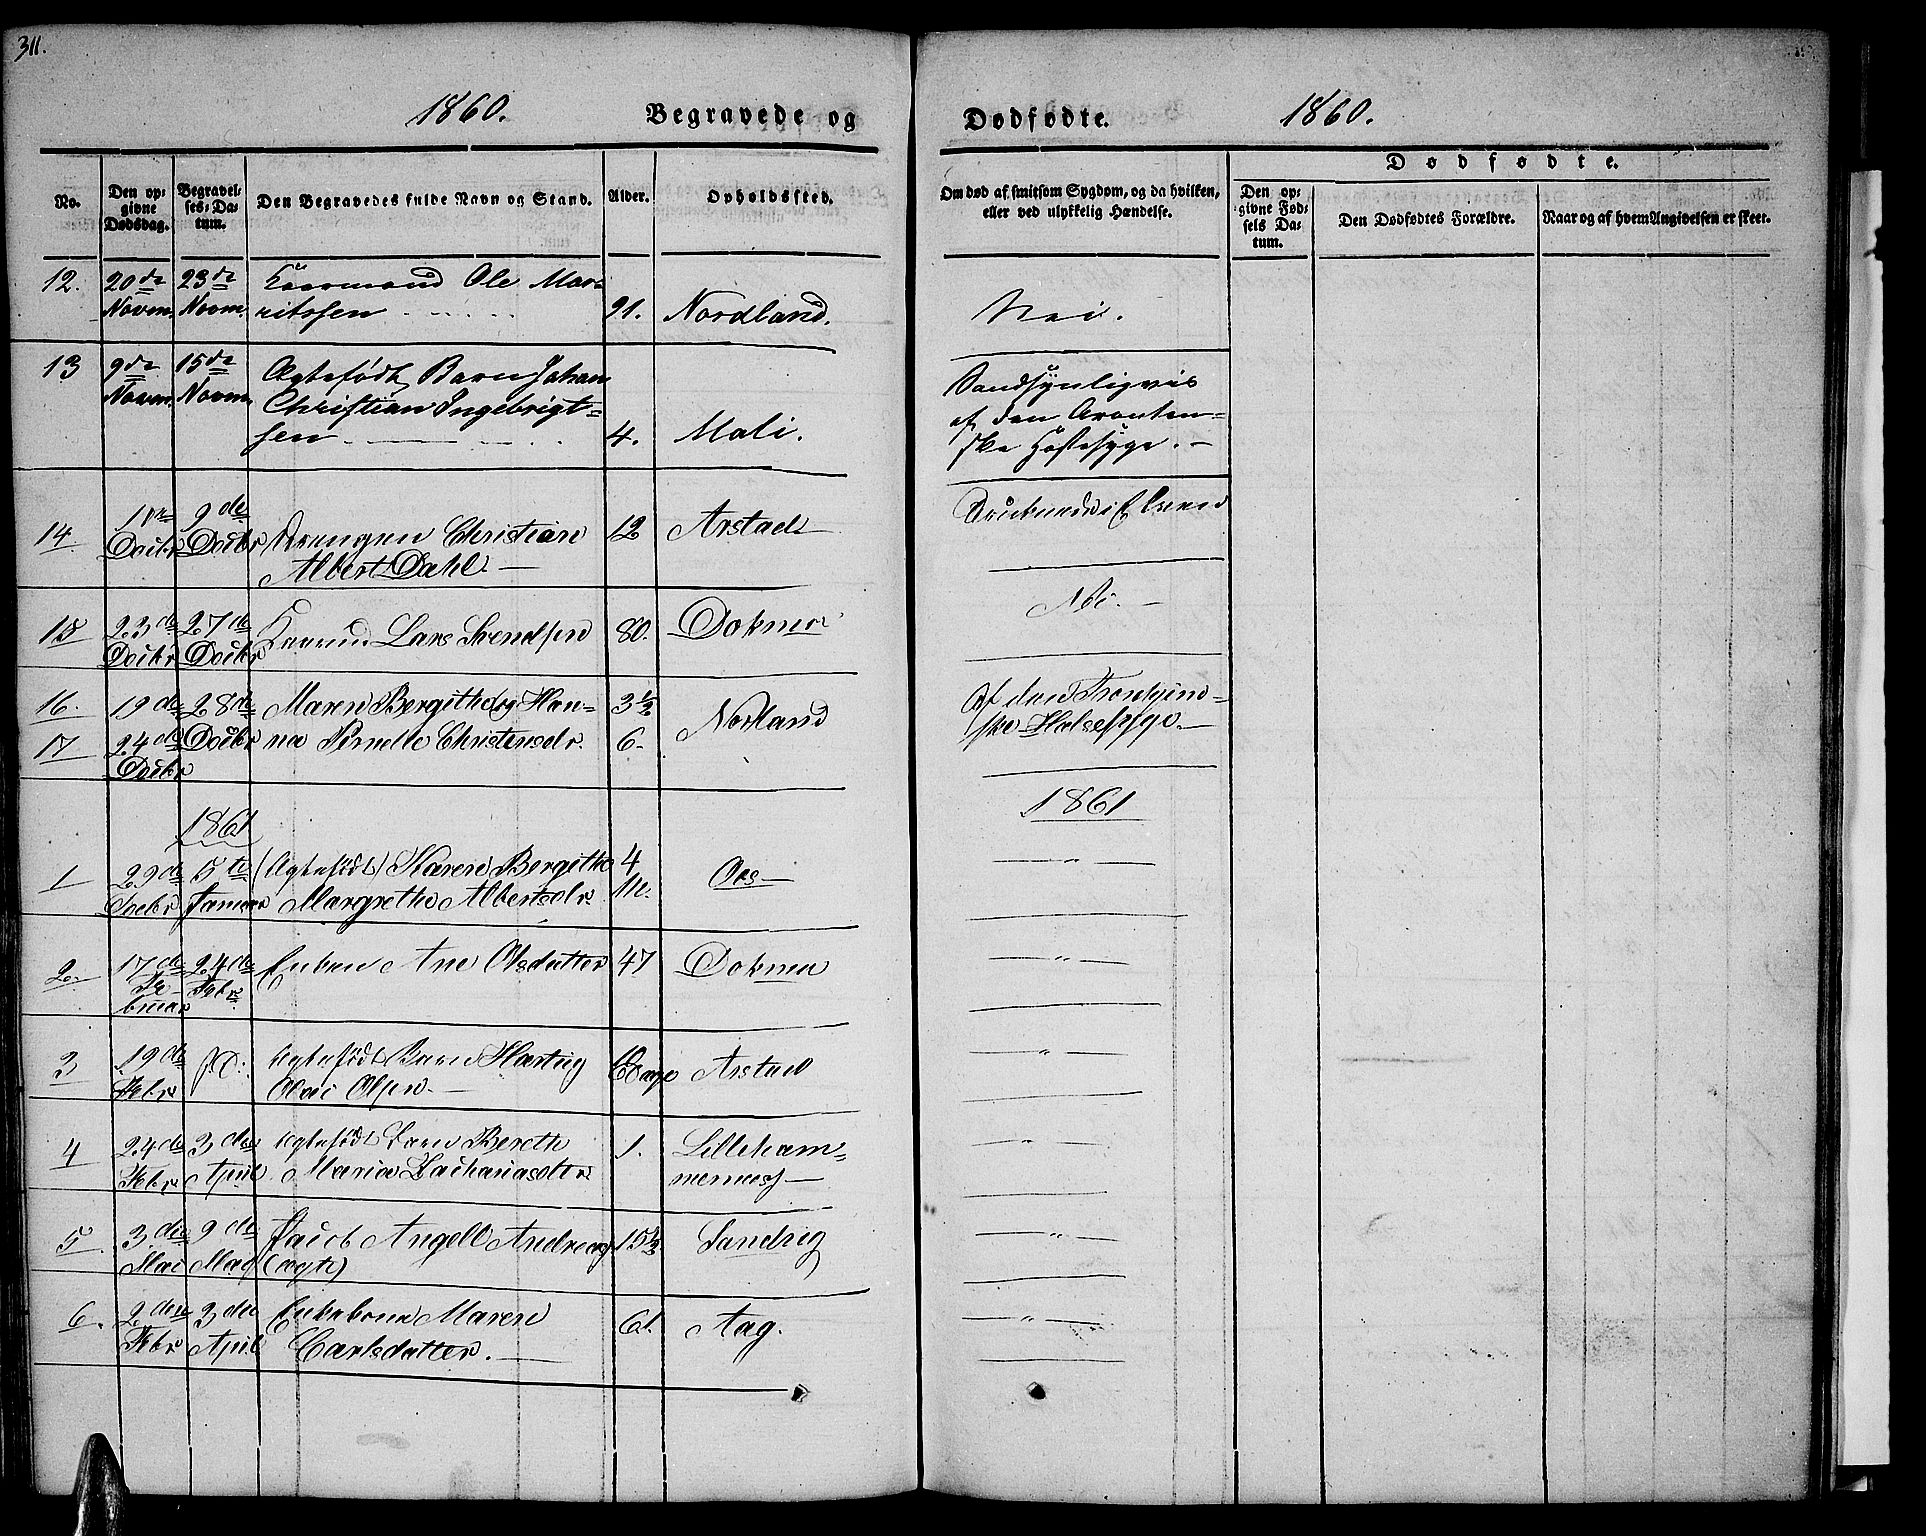 311.
1860. Begravede og
Dødfødte. 1860.
No.
Den opgivne Dødsdag.
Begravelses-Datum.
Den Begravedes fulde Navn og Stand.
Alder.
Opholdssted.
Om død af smitsom Sygdom, og da hvilken, eller ved ulykkelig Hændelse.
Dødfødte.
Den opgivne Fødsels Datum.
Den Dødfødtes Forældre.
Naar og af hvem Angivelsen er skeet.
12. 20de 23de Kaarmand Ole Mau-
Novm. Novm. ritssen 91. Nordland. Nei.
13 9de 15de Ægtefødt Barn Johan
Novm. Novm. Christian Ingebrigt-
sen 4. Mali.
Sandsynligvis
af den
ske
14. 1ste 9de
Decbr Decbr Drengen Christian 12 Arstad
Albert Dahl.
Druknede i Elven
15 23de 27de Lars Svendsen 80. Dokmo
Decbr Decbr
Nei.
16. 19de 28de Maren Bergithe og Han- 3½ Nordland
17 24de Decbr na Pernelle Christensdr. 6.
Decbr
Af den Trondhjem-
ske Halssyge.
1861
1861
1 29de 5te (Ægtefødt) Karen Bergithe 4 Oes
Decbr Januar Margrethe Albertsdr. M. "
2. 17de 24de Enken Ane Olsdatter 47 Dokmo "
Fe- Febr
bruar
3 19de Ægtefødt Barn Hartvig Arstad "
Febr Olai Olsen
4 24de 3die Ægtefødt Barn Bereth 1. Lilleham-
Febr April Maria Zachariasdtr mernesj
5. 3die 9de Jacob Angell Andreas 15½ Sandvig "
Mai Mai (ægte)
6. 2den 3die Enkekone Maren 61. Aag. "
Febr April Carlsdatter.